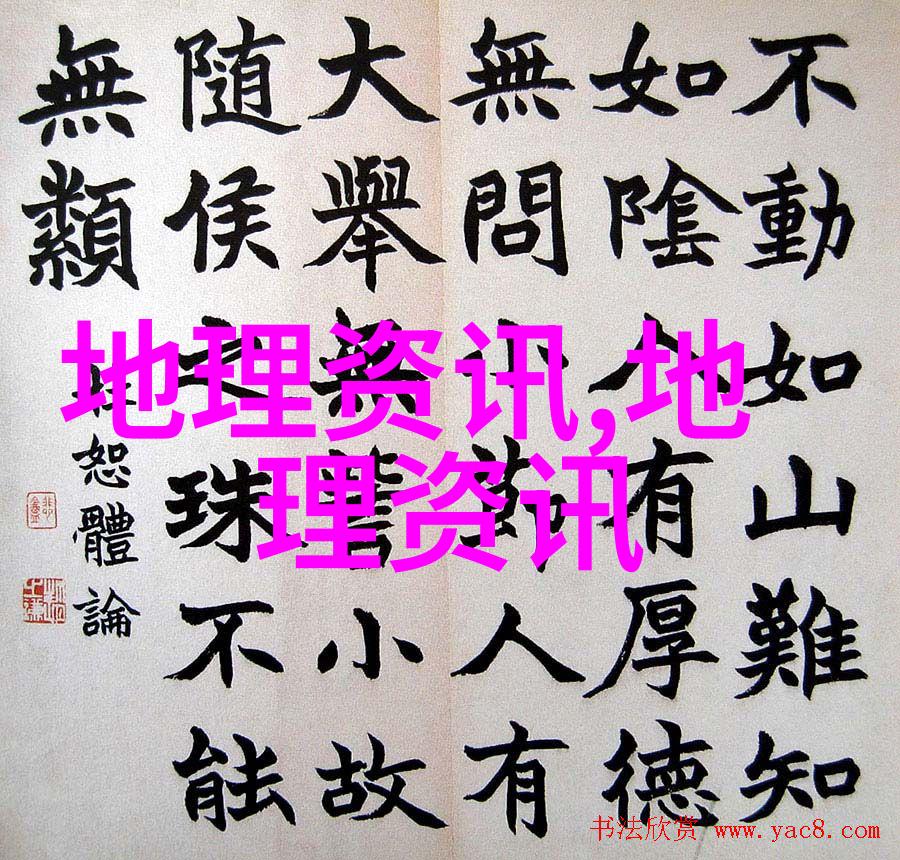 不動如山難知
如陰人有厚德
無問小人有
大舉無訾小故
隨侯之珠不能
無纇
恕體論
地理资讯,地
理资讯
书法欣赏 www.yac8.com